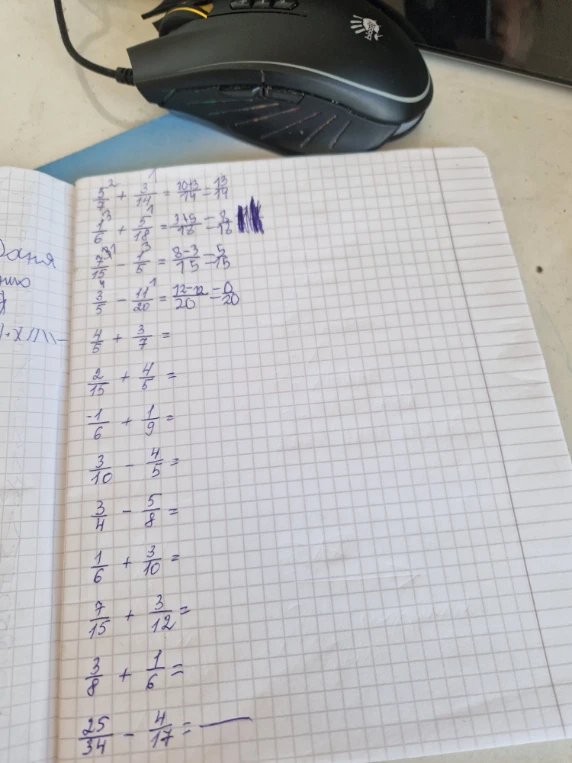 5/7² + 3/14¹ = 10+3/14 = 13/14
1/6³ + 5/18¹ = 3+5/18 = 8/18
7/15¹ - 1/5³ = 8-3/15 = 5/15
3/5 - 11/20¹ = 12-12/20 = 0/20
4/5 + 3/7 =
2/15 + 4/5 =
-1/6 + 1/9 =
3/10 - 4/5 =
3/4 - 5/8 =
1/6 + 3/10 =
7/15 + 3/12 =
3/8 + 1/6 =
25/34 - 4/17 =